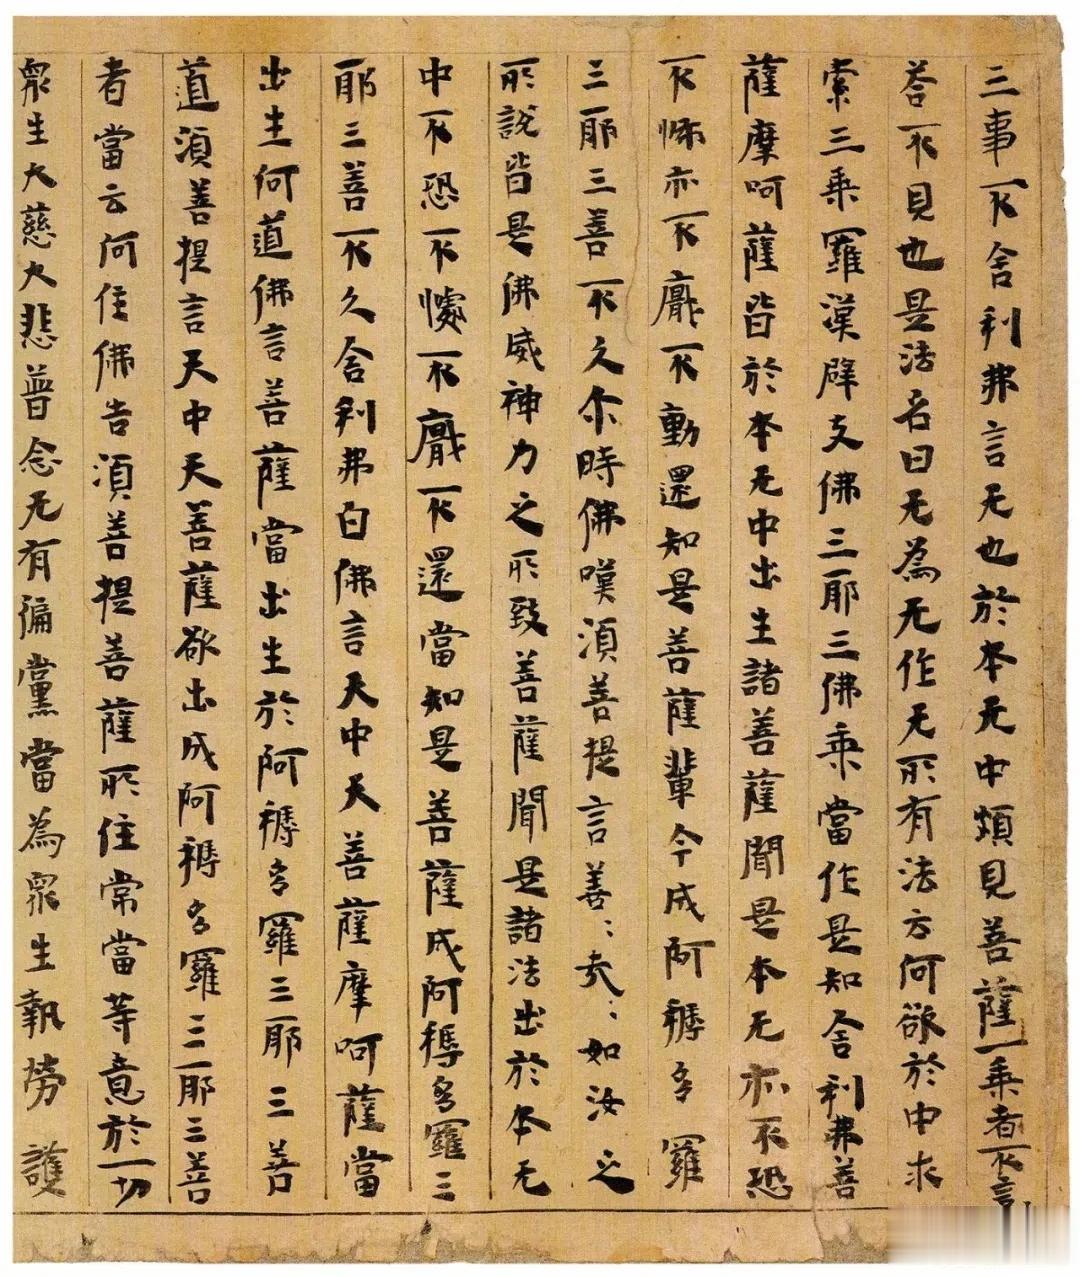 三事不舍利弗言无也於本无中頗見菩薩一乘者不言
荅不見也是法名曰无為无作无所有法方何欲於中求
索三乘羅漢辟支佛三耶三佛乘當作是知舍利弗菩
薩摩呵薩皆於本无中出生諸菩薩聞是本无亦不恐
不怖亦不厭不動還知是菩薩輩今成阿耨多羅
三耶三菩不久尒時佛嘆須菩提言善〻哉〻如汝之
所說皆是佛威神力之所致菩薩聞是諸法出於本无
中不恐不懅不厭不還當知是菩薩成阿耨多羅三
耶三菩不久舍利弗白佛言天中天菩薩摩呵薩當
出生何道佛言菩薩當出生於阿耨多羅三耶三菩
道須菩提言天中天菩薩欲出成阿耨多羅三耶三菩
者當云何住佛告須菩提菩薩所住常當等意於一切
眾生大慈大悲普念无有偏黨當為眾生執勞護